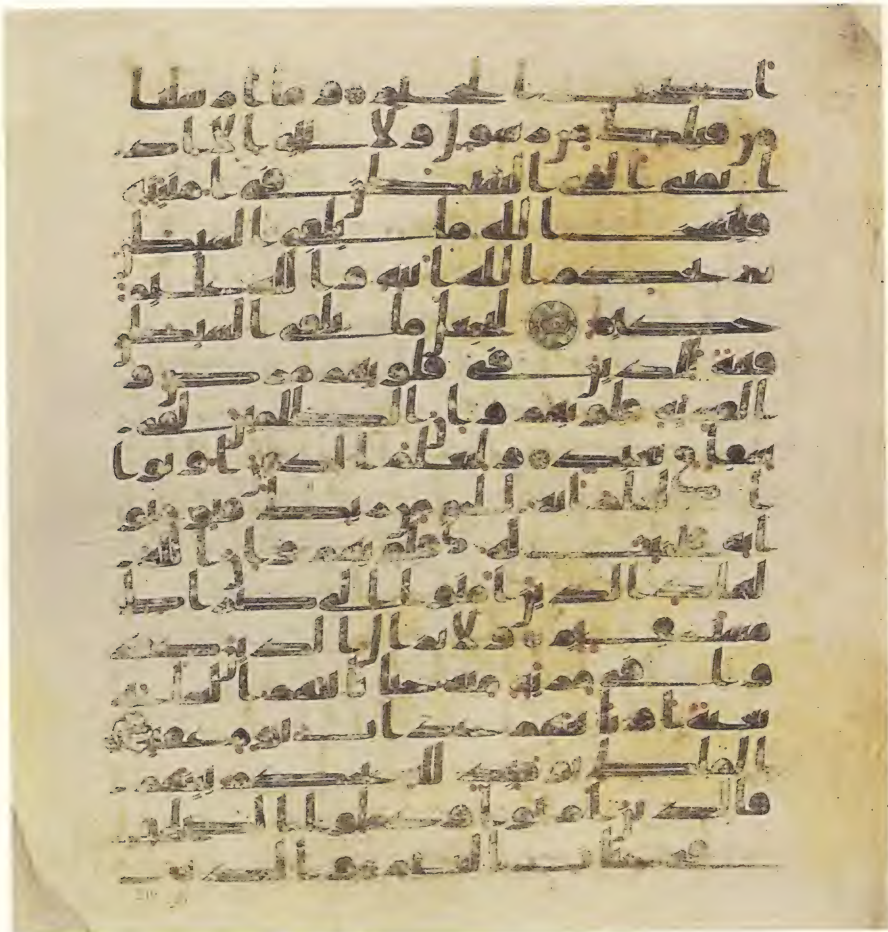 اصحب الجحيم وما ارسلنا
من قبلك من رسول ولا نبي الا اذ
ا تمنى القى الشيطن في امنيته
فينسخ الله ما يلقي الشيطن
ثم يحكم الله ايته والله عليم
حكيم ليجعل ما يلقي الشيطن
فتنة للذين في قلوبهم مرض و
القسية قلوبهم وان الظلمين لفي
شقاق بعيد وليعلم الذين اوتوا
العلم انه الحق من ربك فيومنو
ا به فتخبت له قلوبهم وان الله
لهاد الذين امنوا الى صرط
مستقيم ولا يزال الذين كفر
وا في مرية منه حتى تاتيهم الساعة
بغتة او ياتيهم عذاب يوم عقيم
الملك يومئذ لله يحكم بينهم
فالذين امنوا وعملوا الصلحت
في جنت النعيم والذين